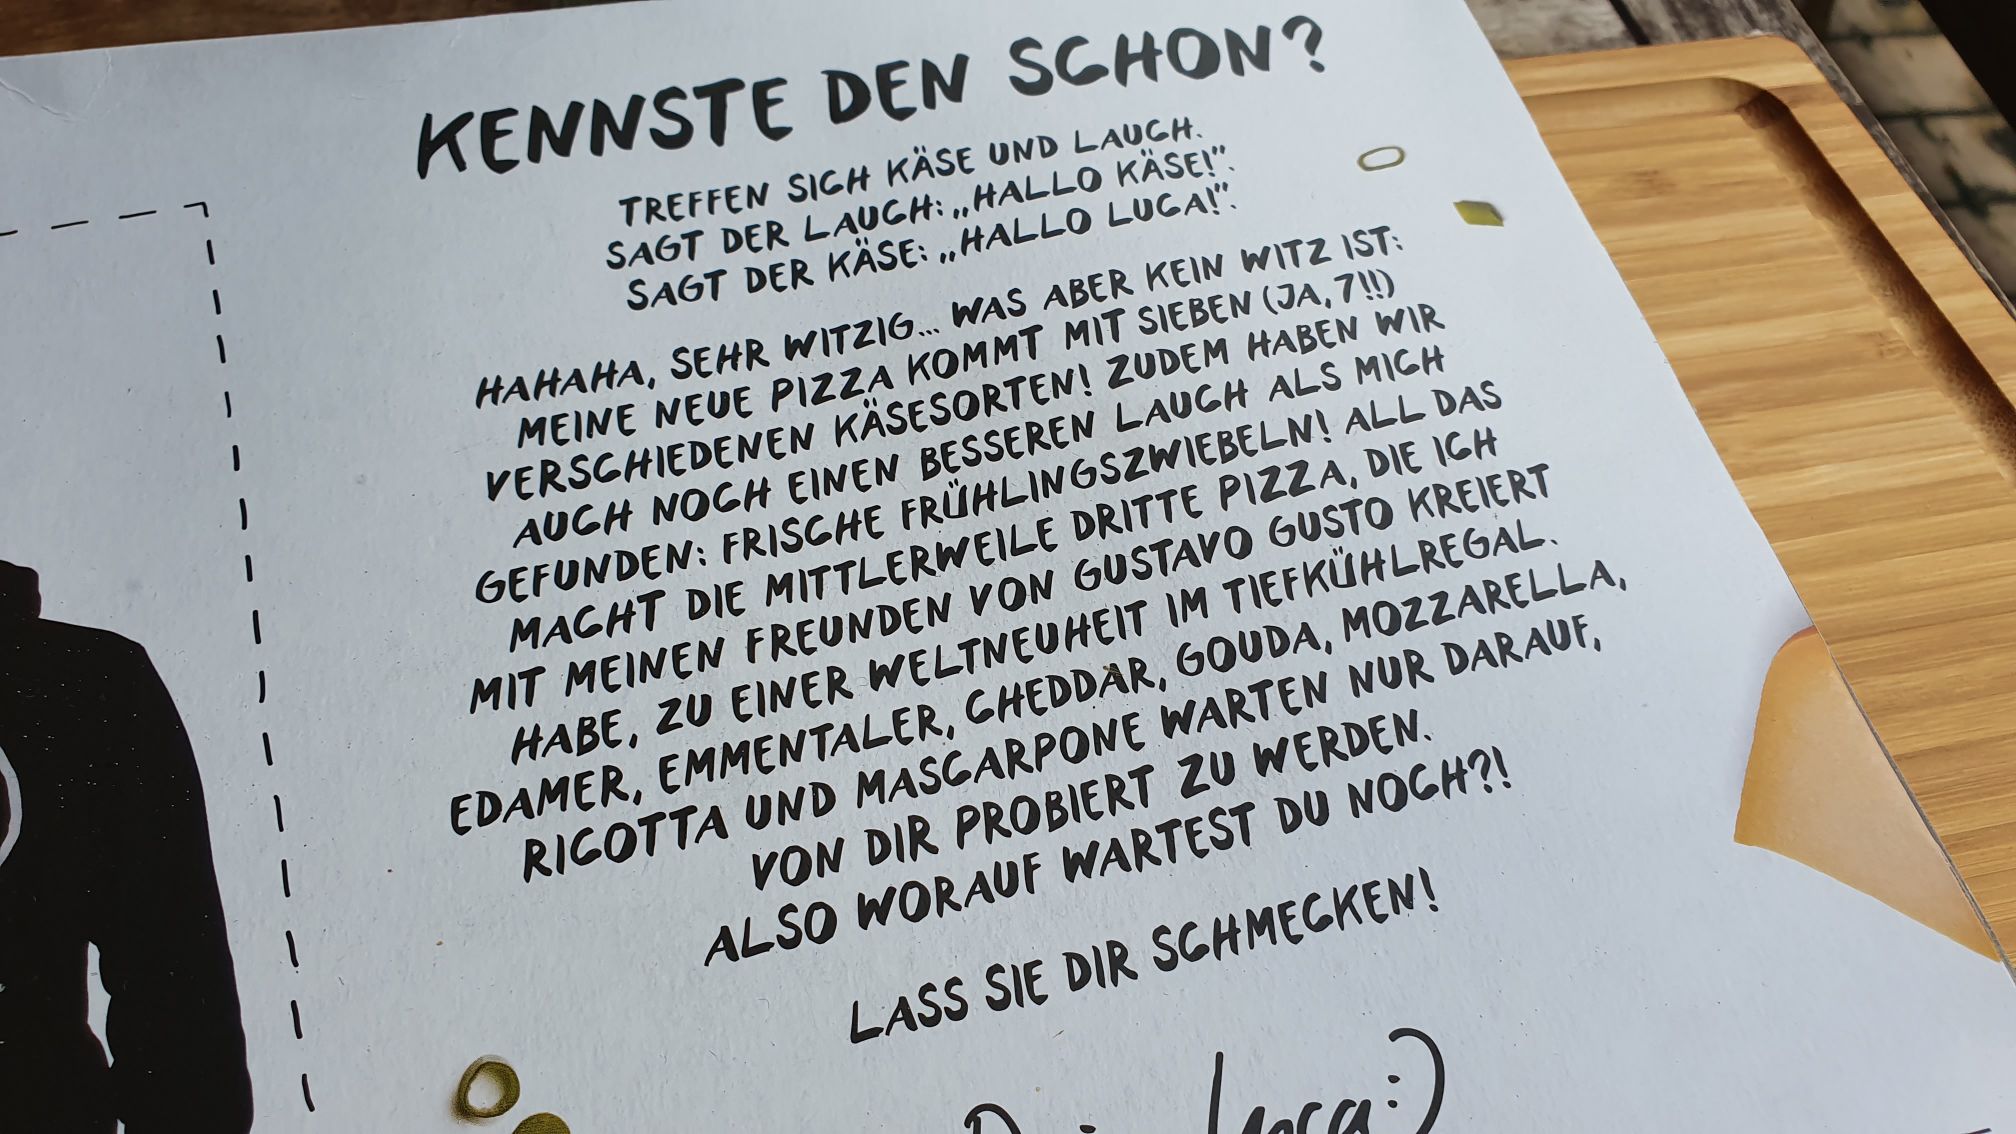 KENNSTE DEN SCHON?
TREFFEN SICH KÄSE UND LAUCH.
SAGT DER LAUCH: „HALLO KÄSE!".
SAGT DER KÄSE: „HALLO LUCA!".
HAHAHA, SEHR WITZIG... WAS ABER KEIN WITZ IST:
MEINE NEUE PIZZA KOMMT MIT SIEBEN (JA, 7!!)
VERSCHIEDENEN KÄSESORTEN! ZUDEM HABEN WIR
AUCH NOCH EINEN BESSEREN LAUCH ALS MICH
GEFUNDEN: FRISCHE FRÜHLINGSZWIEBELN! ALL DAS
MACHT DIE MITTLERWEILE DRITTE PIZZA, DIE ICH
MIT MEINEN FREUNDEN VON GUSTAVO GUSTO KREIERT
HABE, ZU EINER WELTNEUHEIT IM TIEFKÜHLREGAL.
EDAMER, EMMENTALER, CHEDDAR, GOUDA, MOZZARELLA,
RICOTTA UND MASCARPONE WARTEN NUR DARAUF,
VON DIR PROBIERT ZU WERDEN.
ALSO WORAUF WARTEST DU NOCH?!
LASS SIE DIR SCHMECKEN!
Luca:)